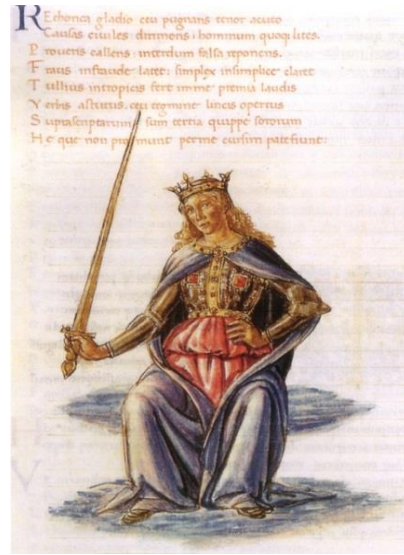 REthorica gladio ceu pugnans tenor acuto
Causas ciuiles dirimens: hominum quoqȝ lites.
Proueris callens: interdum falsa reponens.
Fraus in fraude latet: simplex in simplice claret
Tullius in tropicis fert
laudis
Verbis astutus, ceu tegmine lincis opertus
sum tertia quippe sororum
He que non
munt per me cursim patefiunt: